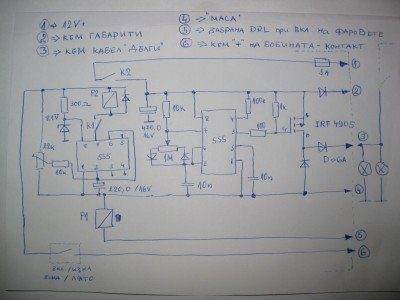 ① → 12V+
② → КЪМ ГАБАРИТИ
③ → КЪМ КАБЕЛ "ДЪЛГИ"
④ → "МАСА"
⑤ → ЗАБРАНА DRL ПРИ ВКЛ НА ФАРОВЕТЕ
⑥ → КЪМ "+" НА БОБИНАТА - КОНТАКТ
K2
5A
①
P2
300Ω
K1
420,0/16V
10k
100k
1k
②
555
8
555
100
IRF 4905
22k
10k
1M
③
220,0/16V
10n
10n
④
P1
⑤
⑥
ВКЛ/ИЗКЛ
ЗИМА/ЛЯТО